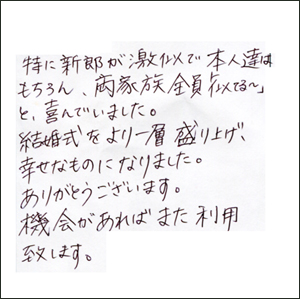 特に新郎が激似で本人達は
もちろん、両家族全員「似てる〜」
と、喜んでいました。
結婚式をより一層盛り上げ、
幸せなものになりました。
ありがとうございます。
機会があればまた利用
致します。